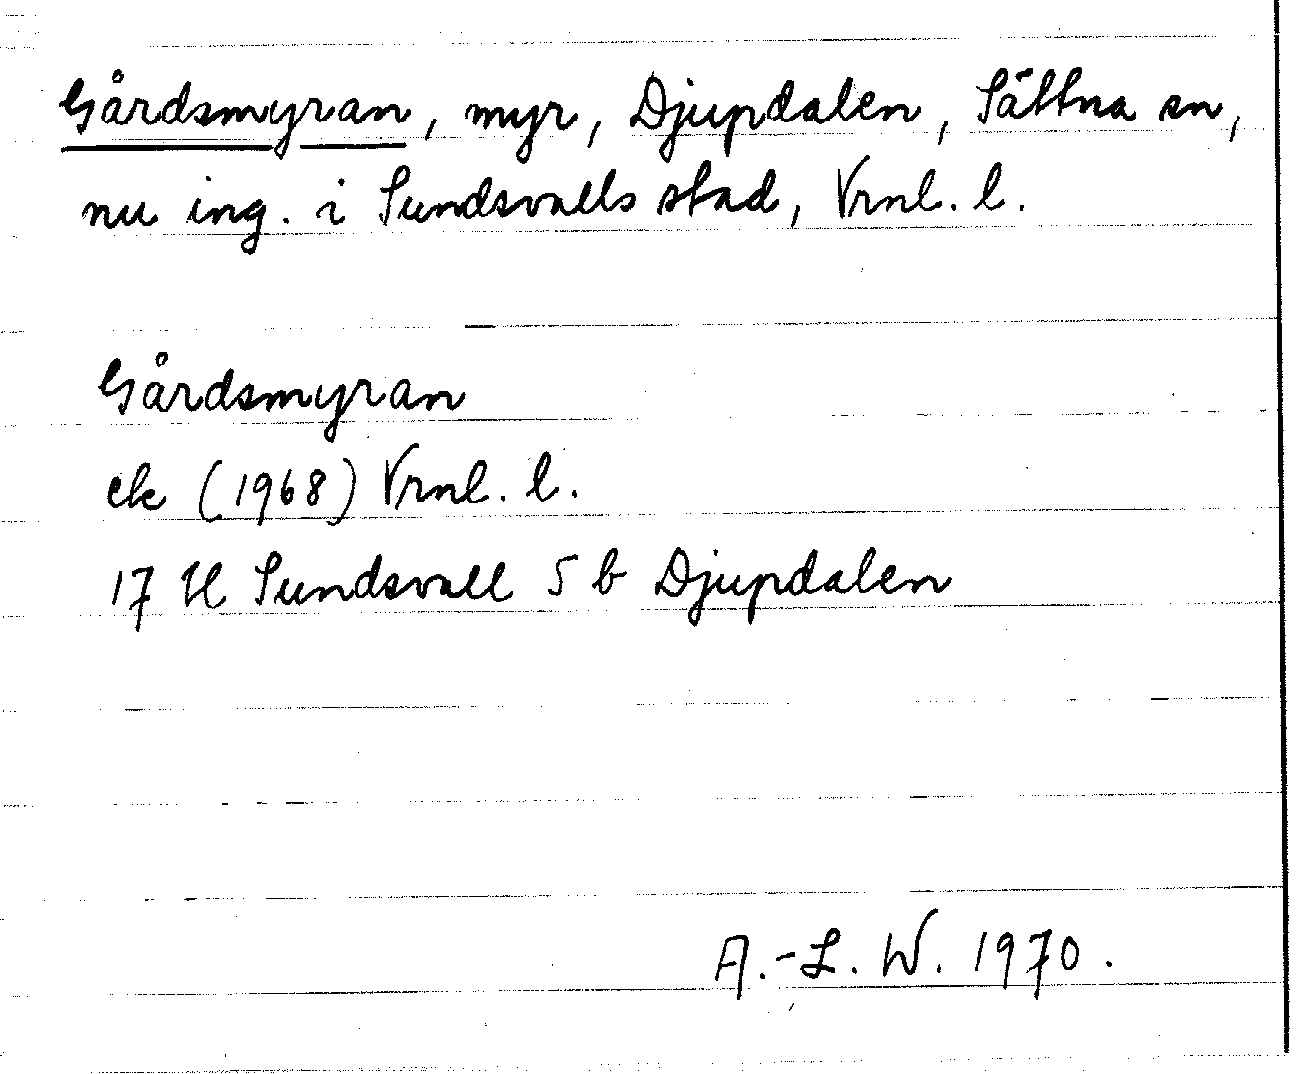 Gårdsmyran, myr, Djupdalen, Sättna sn,
nu ing. i Sundsvalls stad, Vrnl. l.
Gårdsmyran
ek (1968) Vrnl. l.
17 H Sundsvall 5 b Djupdalen
A.-L. W. 1970.